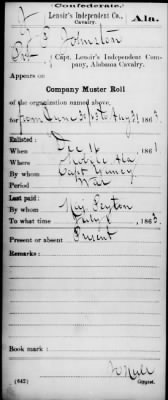 (Confederate.)
Lenoir's Independent Co., Cavalry.
Ala.
Johnston
Pvt, Capt. Lenoir's Independent Company, Alabama Cavalry.
Appears on
Company Muster Roll
of the organization named above,
for from June 30 to Aug 31, 1863.
Enlisted:
When Dec 14, 1861
Where Mobile Ala
By whom Capt
Period War
Last paid:
By whom Maj Peyton
To what time July 1, 1863.
Present or absent Present
Remarks:
Book mark:
(642)
Copyist.